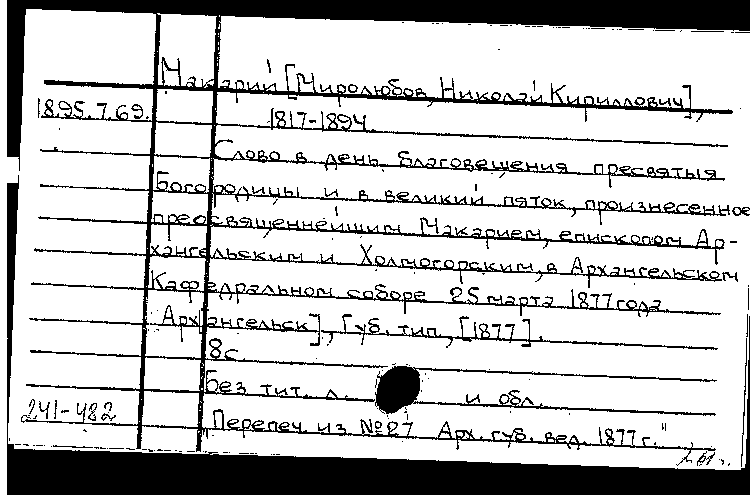 Макарий [Миролюбов, Николай Кириллович],
18.95.7.69. 1817-1894.
Слово в день благовещения пресвятыя
Богородицы и в великий пяток, произнесенное
преосвященнейшим Макарием, епископом Ар-
хангельским и Холмогорским, в Архангельском
Кафедральном соборе 25 марта 1877 года.
Арх[ангельск], Губ. тип., [1877].
8с.
Без тит. л. и обл.
241-482
"Перепеч. из №27 Арх. губ. вед. 1877 г."